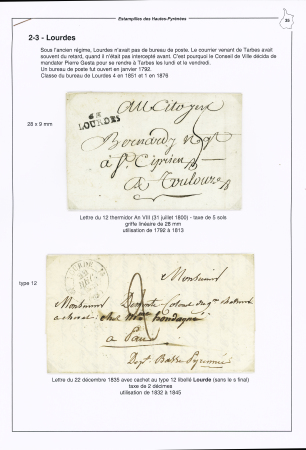 Estampilles des Hautes-Pyrénées
2-3 - Lourdes
Sous l'ancien régime, Lourdes n'avait pas de bureau de poste. Le courrier venant de Tarbes avait
souvent du retard, quand il n'était pas intercepté avant. C'est pourquoi le Conseil de Ville décida de
mandater Pierre Gesta pour se rendre à Tarbes les lundi et le vendredi.
Un bureau de poste fut ouvert en janvier 1792.
Classe du bureau de Lourdes 4 en 1851 et 1 en 1876
28 x 9 mm
LOURDES
Au Citoyen
à St Ciprien
à Toulouze
Lettre du 12 thermidor An VIII (31 juillet 1800) - taxe de 5 sols
griffe linéaire de 28 mm
utilisation de 1792 à 1813
type 12
Monsieur
Monsieur
à Pau
Dept. Basses Pyrennées
Lettre du 22 décembre 1835 avec cachet au type 12 libellé Lourde (sans le s final)
taxe de 2 décimes
utilisation de 1832 à 1845